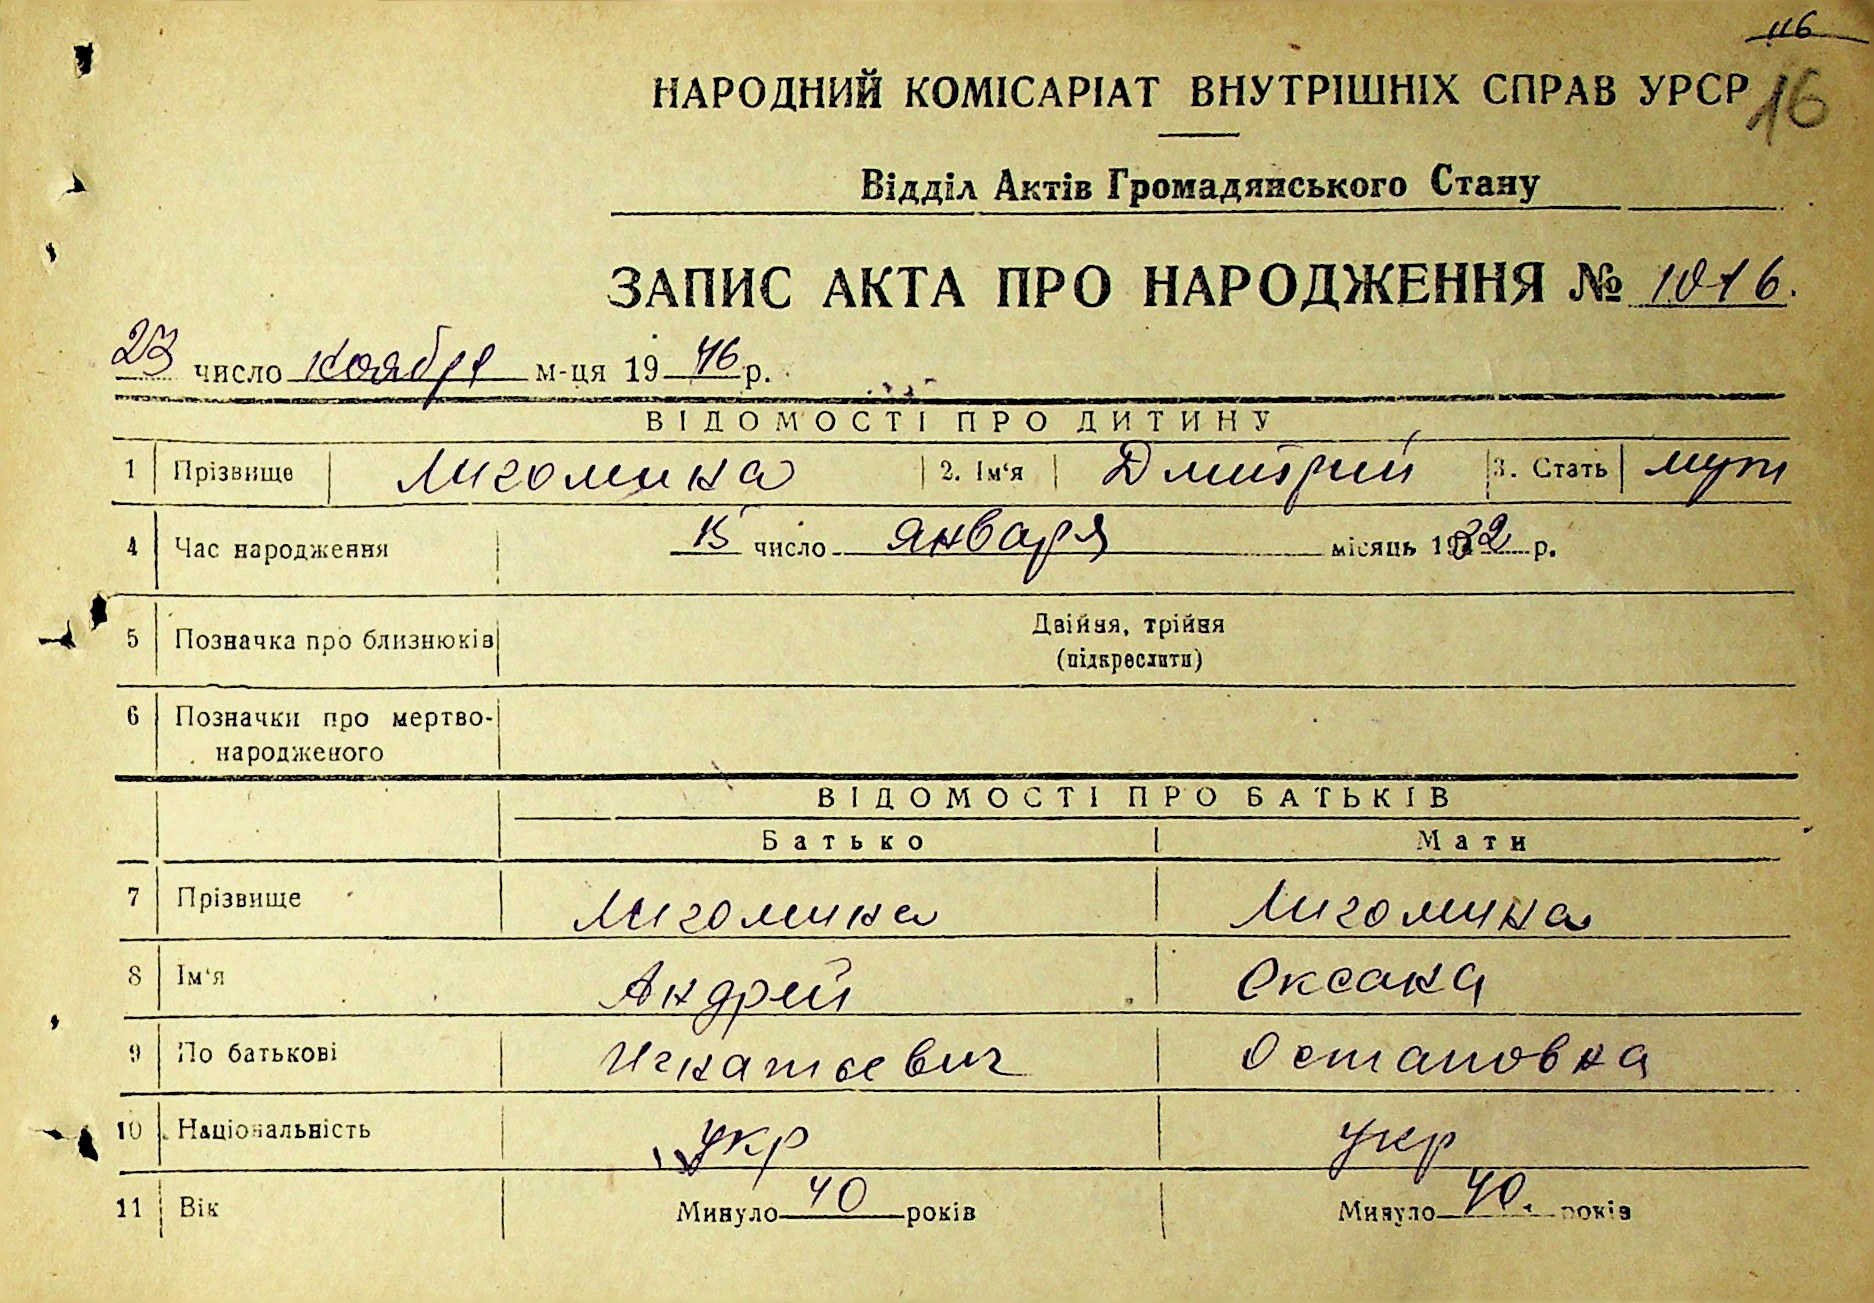 116
16
НАРОДНИЙ КОМІСАРІАТ ВНУТРІШНІХ СПРАВ УРСР
Відділ Актів Громадянського Стану
ЗАПИС АКТА ПРО НАРОДЖЕННЯ № 1016.
23 число ноября м-ця 1946 р.
ВІДОМОСТІ ПРО ДИТИНУ
1 Прізвище Лигомина 2. Ім'я Дмитрий 3. Стать муж
4 Час народження 15 число января місяць 1932 р.
5 Позначка про близнюків Двійня, трійня
(підкреслити)
6 Позначки про мертво-
народженого
ВІДОМОСТІ ПРО БАТЬКІВ
Батько Мати
7 Прізвище Лигомина Лигомина
8 Ім'я Андрей Оксана
9 По батькові Игнатьевич Остаповна
10 Національність укр укр
11 Вік Минуло 40 років Минуло 40. років